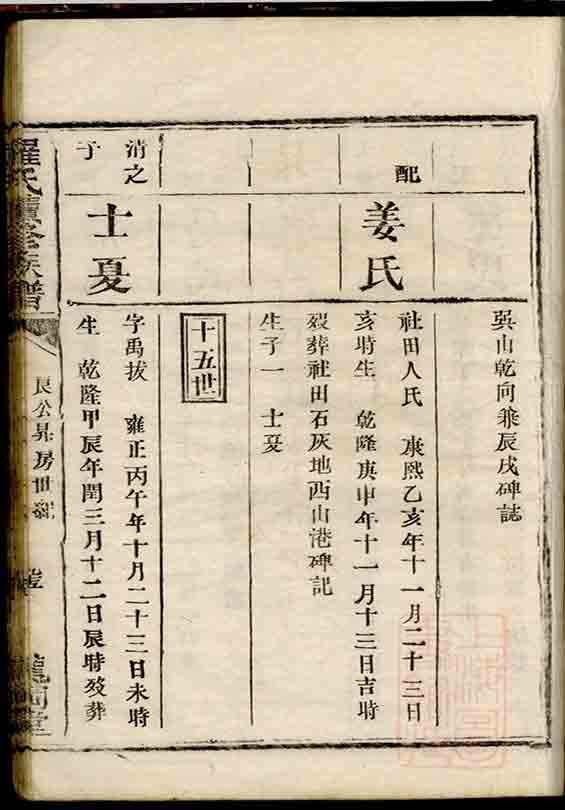 吳山乾向兼辰戌碑誌
配 姜氏
社田人氏 康熙乙亥年十一月二十三日
亥時生 乾隆庚申年十一月十三日吉時
歿葬社田石灰地西山港碑記
生子一 士夏
十五世
清之子 士夏
字禹拔 雍正丙午年十月二十三日未時
生 乾隆甲辰年閏三月十二日辰時歿葬
羅氏續修族譜
良公昇房世紀